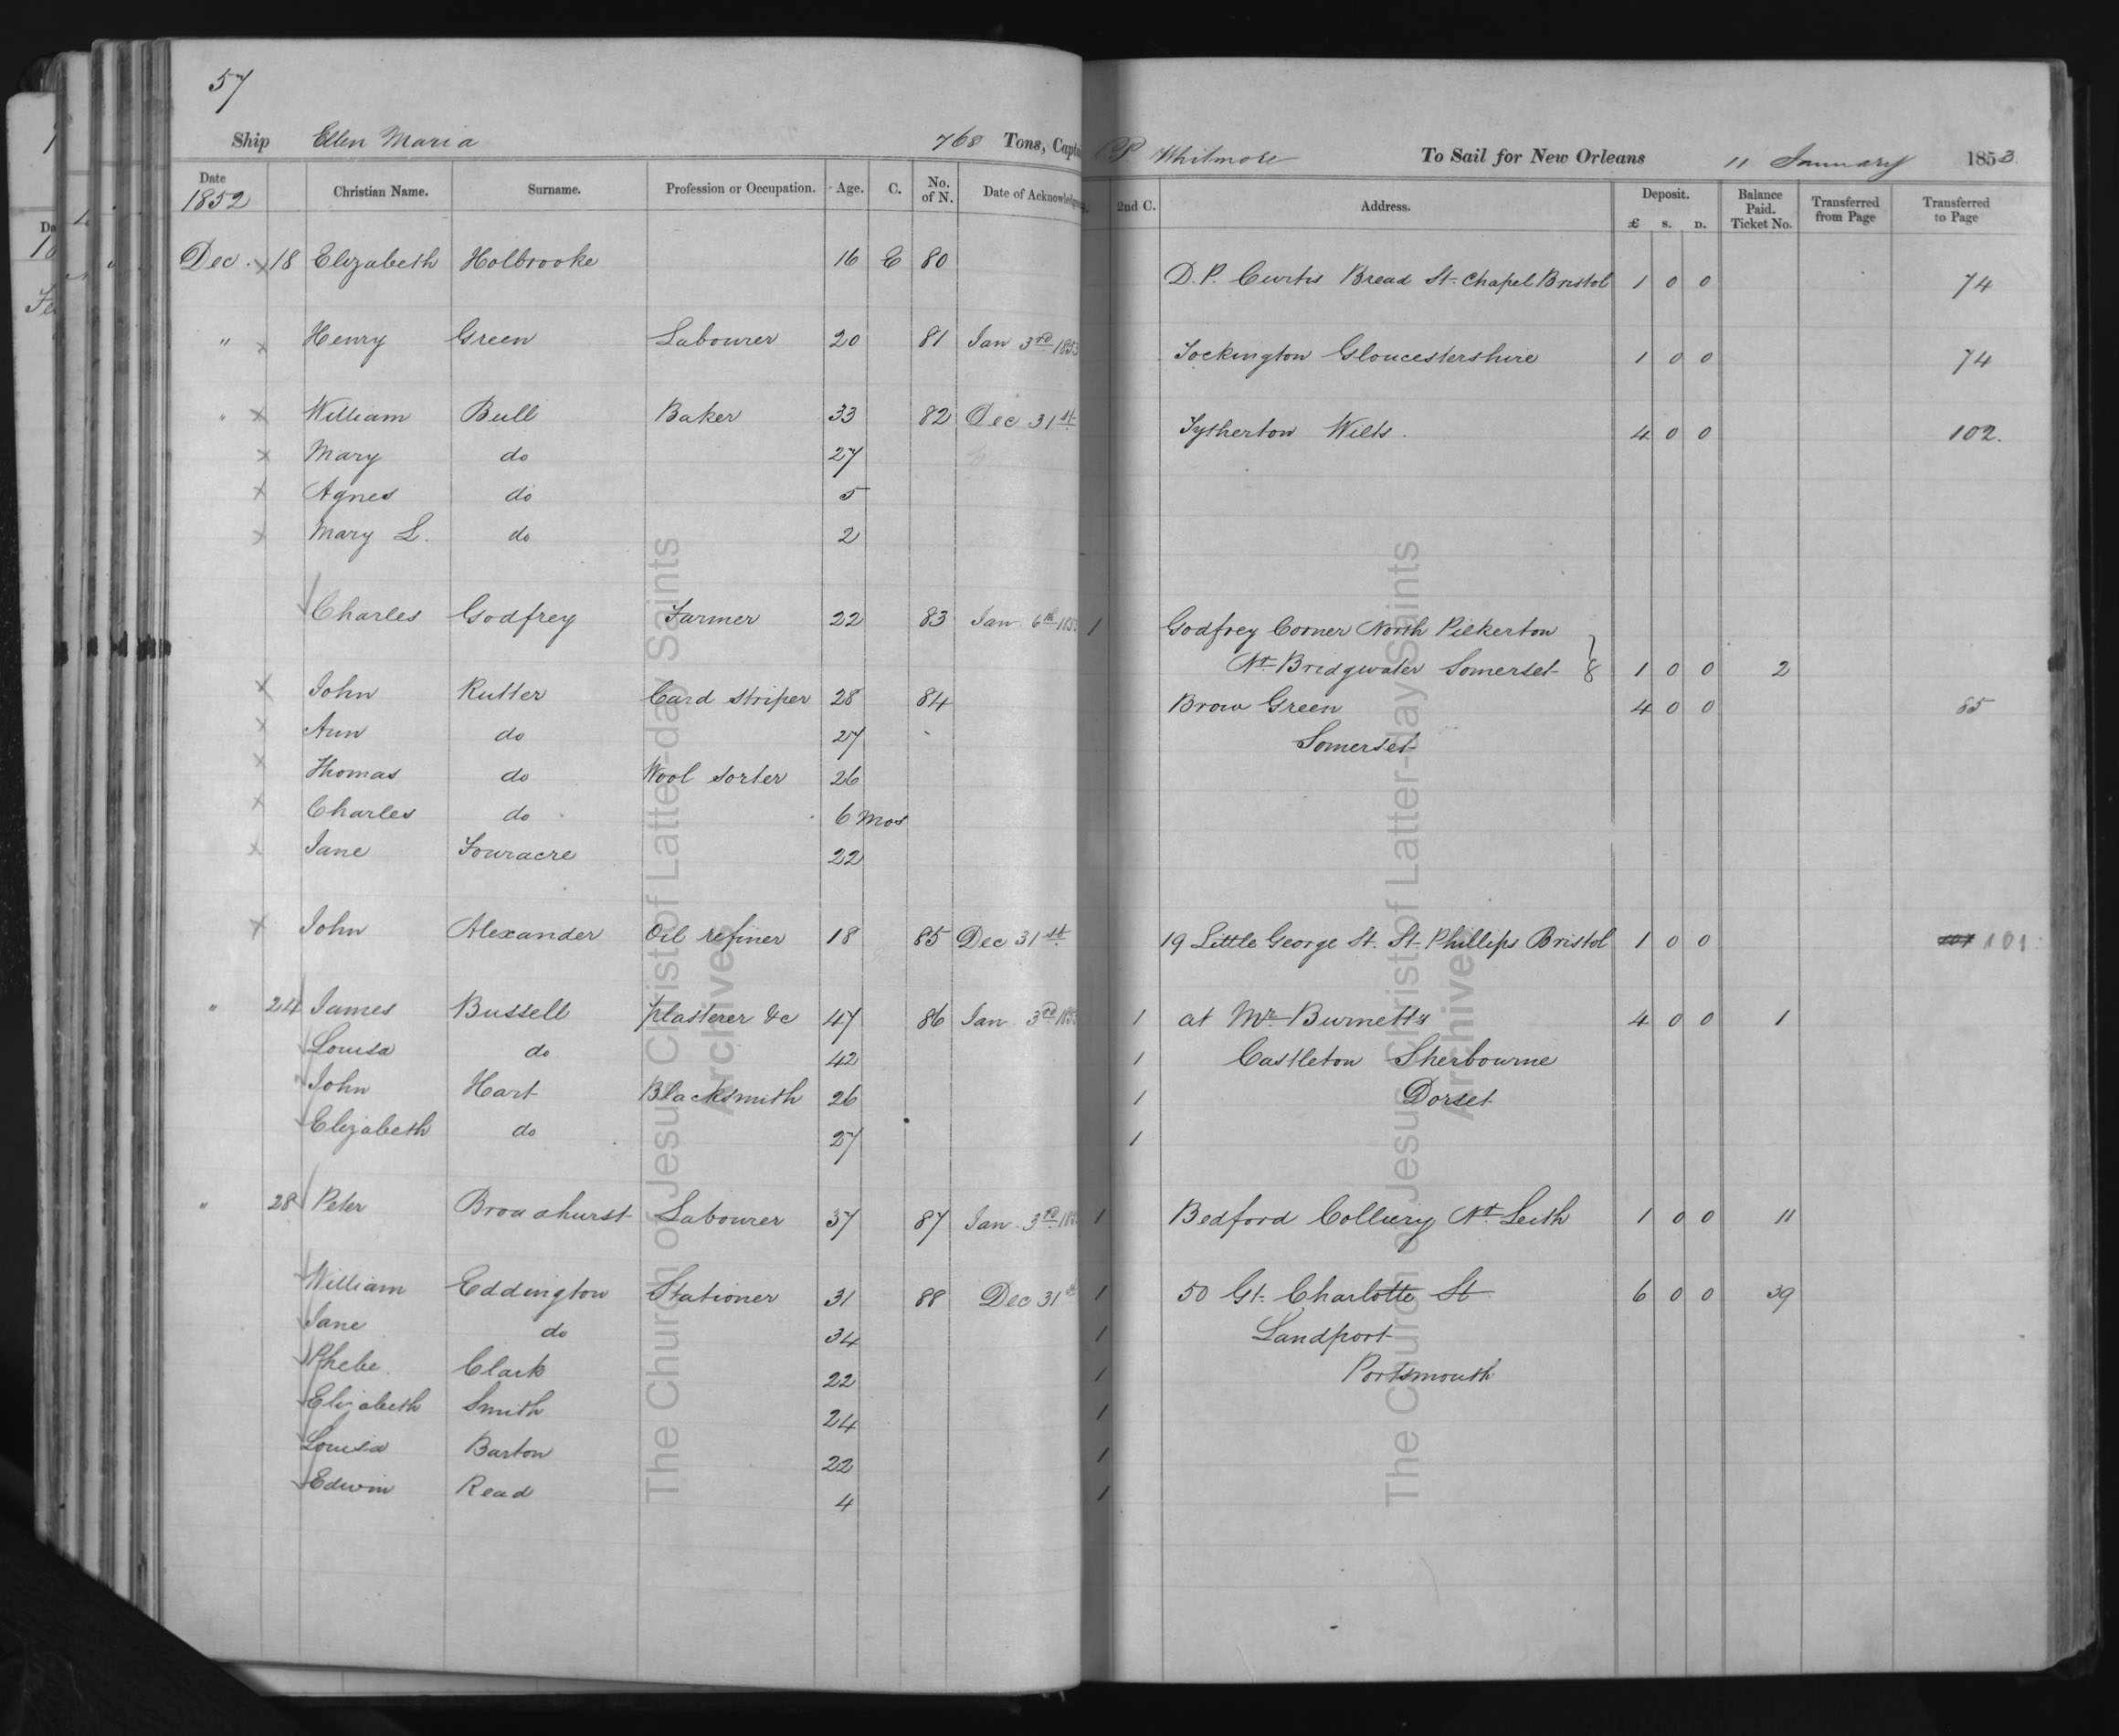 57
Ship Ellen Maria 768 Tons, Capt P Whitmore To Sail for New Orleans 11 January 1853
Date 1852 Christian Name. Surname. Profession or Occupation. Age. C. No. of N. Date of Acknowledg 2nd C. Address. Deposit. £ s. D. Balance Paid. Ticket No. Transferred from Page Transferred to Page
Dec. x 18 Elizabeth Holbrooke 16 C 80 D. P. Curtis Bread St. Chapel Bristol 1 0 0 74
" x Henry Green Labourer 20 81 Jan 3rd 1853 Tockington Gloucestershire 1 0 0 74
" x William Bull Baker 33 82 Dec 31st Tytherton Wilts. 4 0 0 102.
x Mary do 27
x Agnes do 5
x Mary L. do 2
Charles Godfrey Farmer 22 83 Jan. 6th 1853 1 Godfrey Corner North Pilkerton
Nr Bridgwater Somerset 8 1 0 0 2
x John Rutter Card striper 28 84 Brow Green 4 0 0 85
x Ann do 27 Somerset
x Thomas do Wool sorter 26
x Charles do 6 Mos
x Jane Fouracre 22
x John Alexander Oil refiner 18 85 Dec 31st 19 Little George St. St. Phillips Bristol 1 0 0 101
" 24 James Bussell plasterer &c 47 86 Jan 3rd 1853 1 at Mr Burnett's 4 0 0 1
Louisa do 42 1 Castleton Sherbourne
John Hart Blacksmith 26 1 Dorset
Elizabeth do 27 1
" 28 Peter Broadhurst Labourer 37 87 Jan. 3rd 185 1 Bedford Colliery Nr Leith 1 0 0 11
William Eddington Stationer 31 88 Dec 31st 1 50 Gt. Charlotte St 6 0 0 39
Jane do 34 1 Landport
Phebe Clark 22 1 Portsmouth
Elizabeth Smith 24 1
Louisa Barton 22 1
Edwin Read 4 1
The Church of Jesus Christ of Latter-day Saints
Archives
The Church of Jesus Christ of Latter-day Saints
Archives